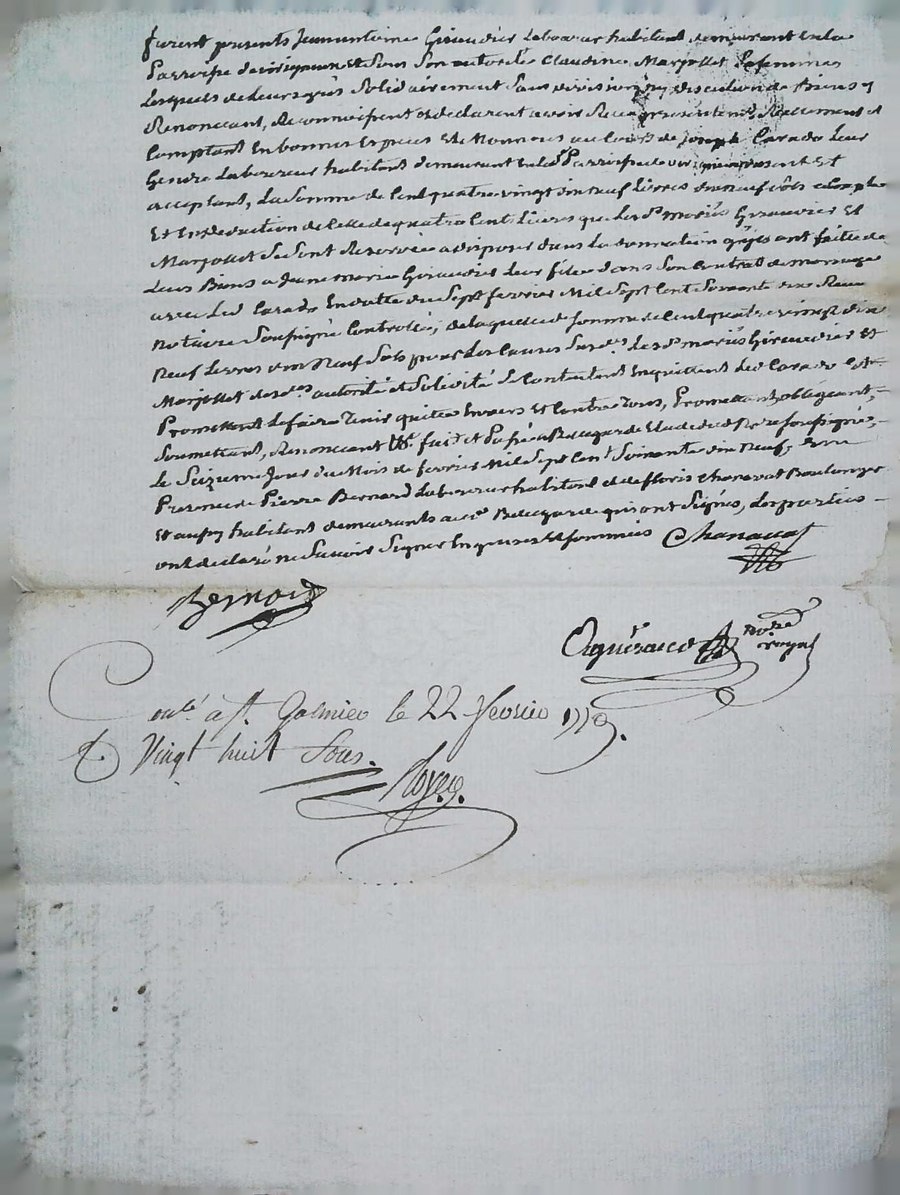 furent presents Jean antoine Giraudier Laboureur habitant demeurant en la
Parroisse de virigneux et sous son autorité Claudine Marjollet sa femme
Lesquels de leurs grés solidairement sans division ny discution de Biens y
Renoncant, Reconnoissent et declarent avoir Reçu presentemt Reellement et
Comptant en bonnes Espèces et Monnoies au Cours de Joseph Carado leur
Gendre Laboureur habitant demeurant en lad Parroisse de virigneux present et
acceptant, La somme de Cent quatre vingt dix neuf Livres dix neuf sols a Compte
Et En deduction de Celle de quatre Cent Livres que Les dts mariés Giraudier Et
Marjollet se sont Reservée a disposer dans La donnation qu'ils ont faite de
Leurs Biens a Jeane marie Giraudier Leur fille dans son Contrat de mariage
avec Led Carado En datte du sept fevrier Mil sept Cent soixante dix Reçu
notaire soussigné Controllé, de laquelle de somme de Cent quatre vingt dix
Neuf Livres dix Neuf sols pour Les Causes susdes Les dts mariés Giraudier Et
Marjollet desdes autorité et solidité se Contentent En quittent led Carado Et
Promettent Le faire Tenir quitte Envers Et Contre Tous, Promettant, obligeant,
Soumettant, Renoncant &c fait et Passé a Bellegarde Etude du d Nre soussigné,
Le Seizieme Jour du Mois de fevrier Mil Sept Cent Soixante dix Neuf, En
Presence de Pierre Bernard Laboureur habitant et de floris Chanavat Boulanger
Et aussy habitant demeurants aud Bellegarde qui ont Signés, Les parties
ont declaré ne Savoir Signer Enquises Et Sommées Chanavat
Bernard
Nore royal
Conlé à St. Galmier le 22 fevrier 1779.
R Vingt huit Sous.